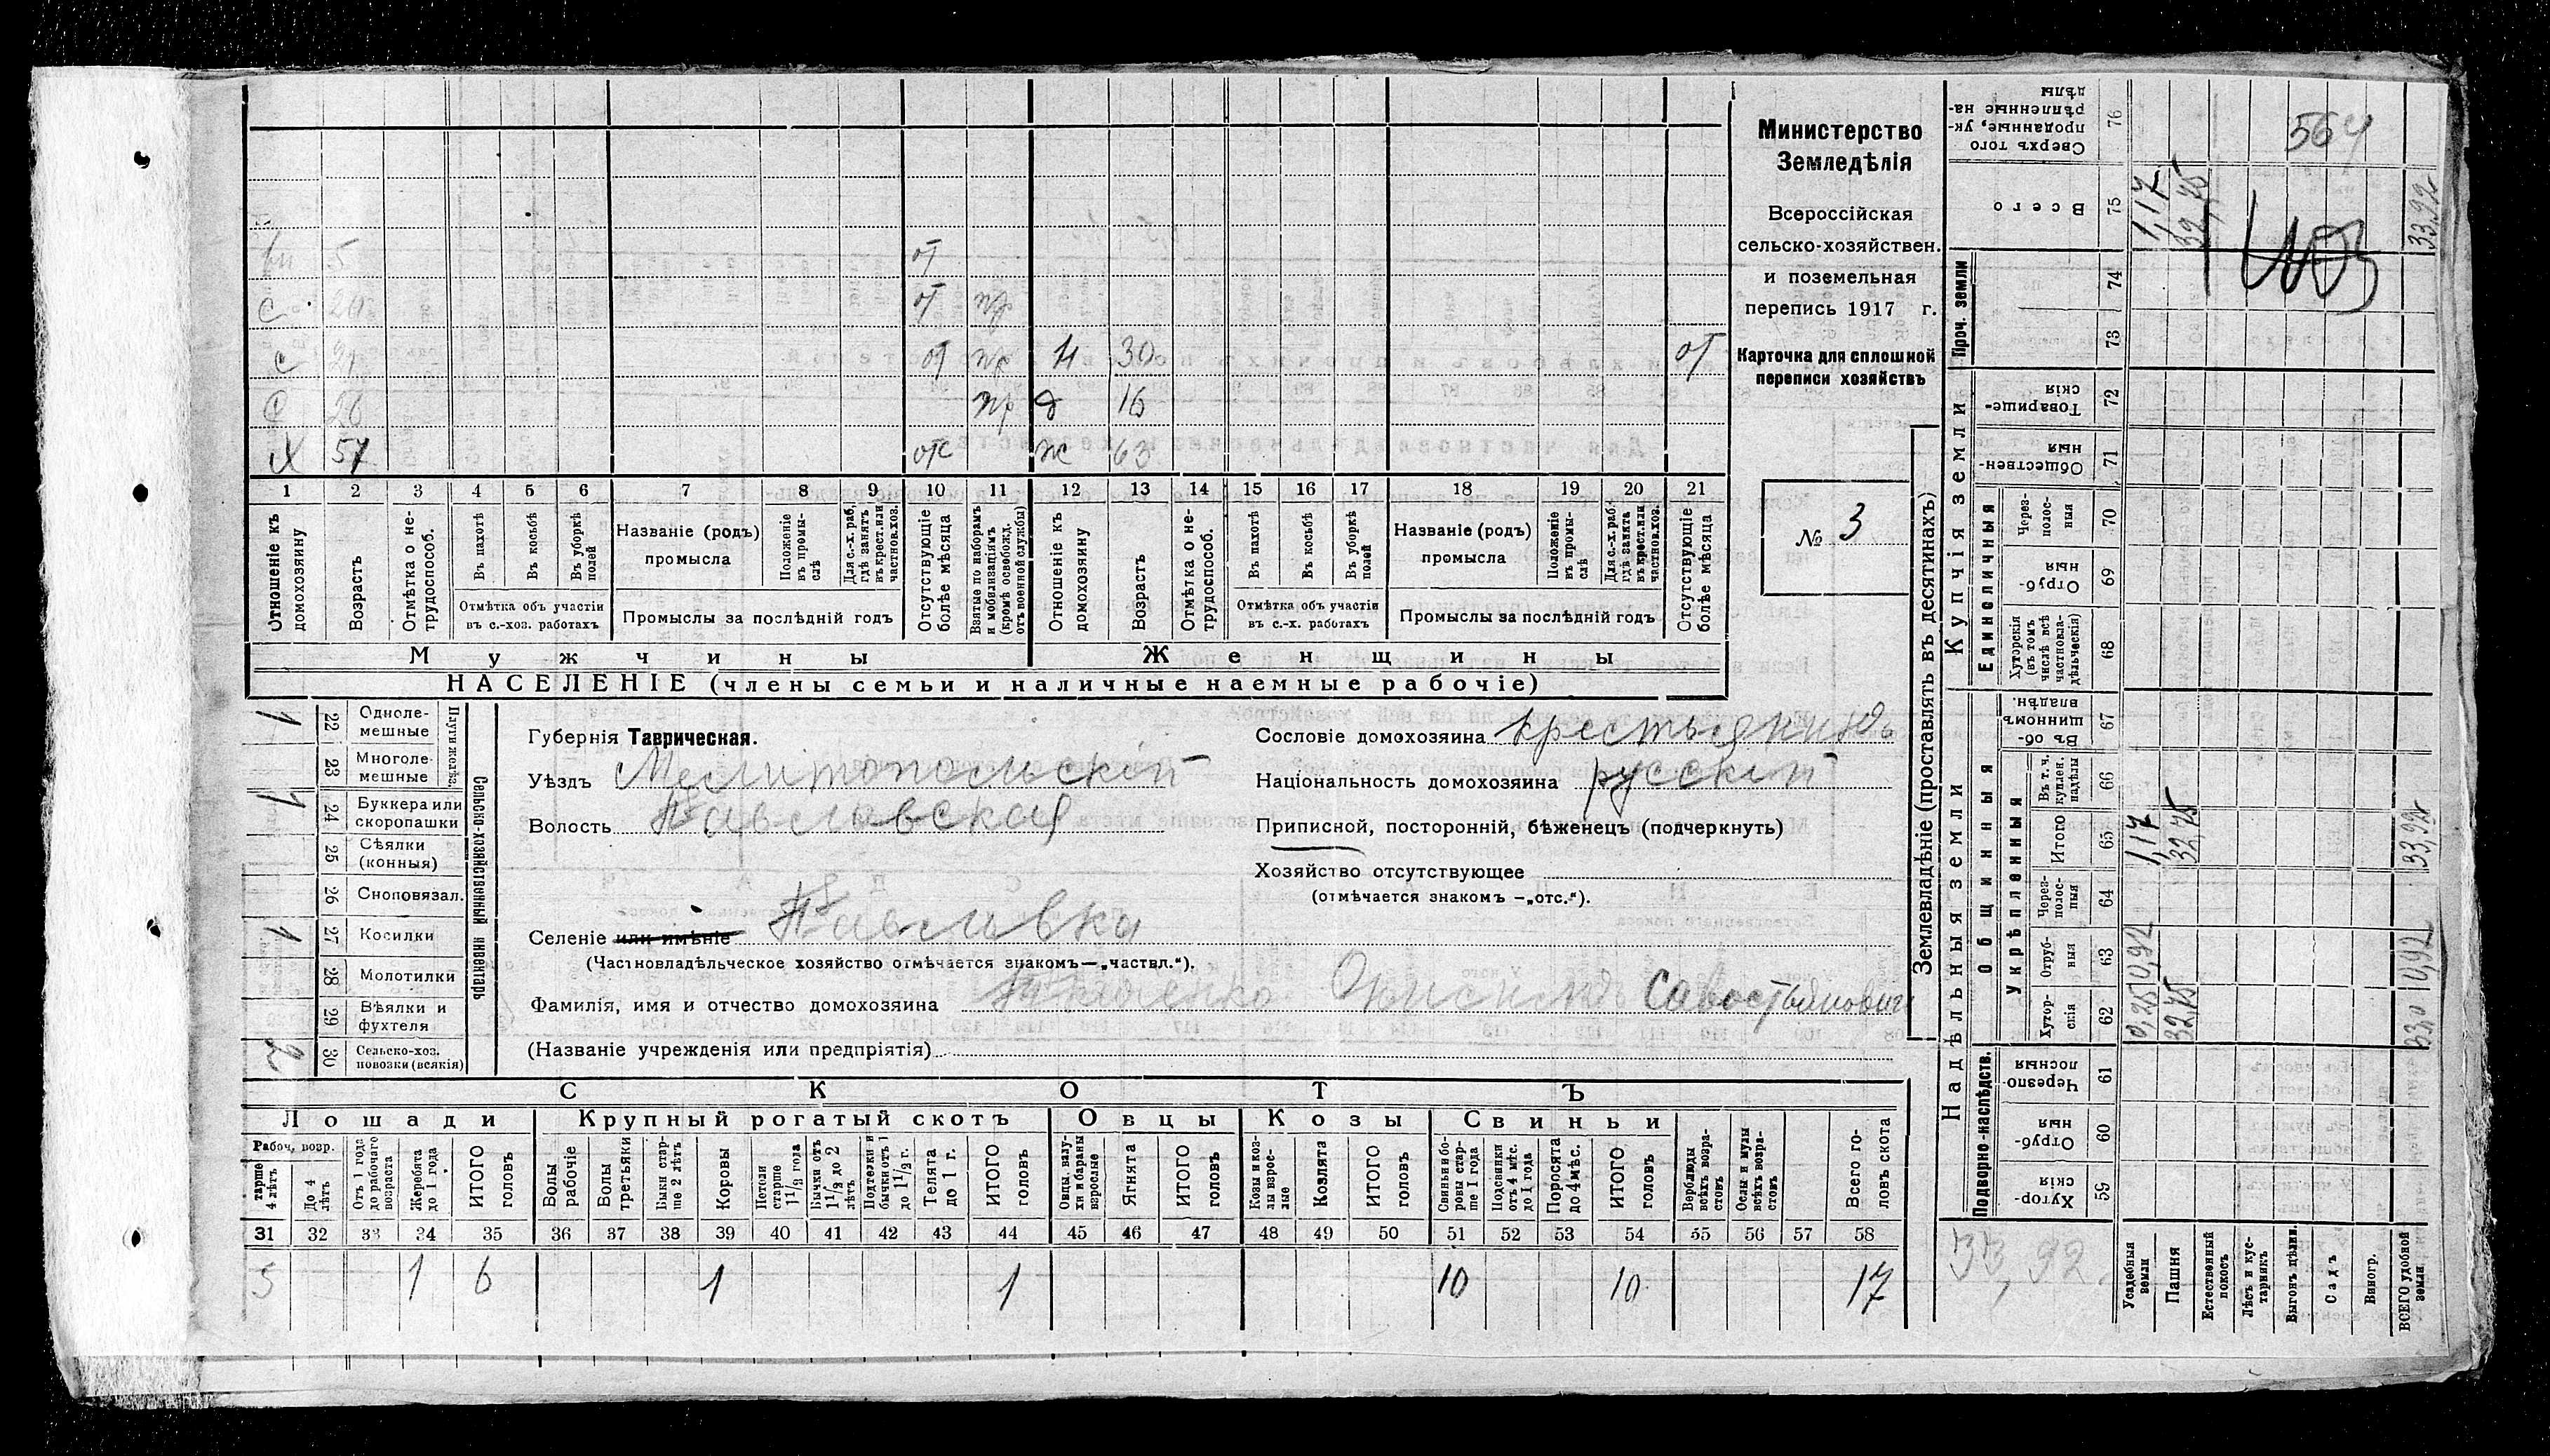 Министерство
Земледѣлія
Всероссійская
сельско-хозяйствен.
и поземельная
перепись 1917 г.
Карточка для сплошной
переписи хозяйствъ
№ 3
564
5 от
с от пр
с от пр н 30 от
с 26 пр д 16
х 57 отс ж 63
1 2 3 4 5 6 7 8 9 10 11 12 13 14 15 16 17 18 19 20 21
Отношеніе къ домохозяину
Возрастъ
Отмѣтка о не-трудоспособ.
Въ пахотѣ
Въ косьбѣ
Въ уборкѣ полей
Отмѣтка объ участіи въ с.-хоз. работахъ
Названіе (родъ) промысла
Положеніе въ промы-слѣ
Для с.-х. раб. гдѣ занятъ въ крест. или частнов. хоз.
Промыслы за послѣдній годъ
Отсутствующіе болѣе мѣсяца
Взятые по наборамъ и мобилизаціямъ (кромѣ освобожд. отъ военной службы)
Отношеніе къ домохозяину
Возрастъ
Отмѣтка о не-трудоспособ.
Въ пахотѣ
Въ косьбѣ
Въ уборкѣ полей
Отмѣтка объ участіи въ с.-х. работахъ
Названіе (родъ) промысла
Положеніе въ промы-слѣ
Для с.-х. раб. гдѣ занята въ крест. или частнов. хоз.
Промыслы за послѣдній годъ
Отсутствующіе болѣе мѣсяца
Мужчины Женщины
НАСЕЛЕНІЕ (члены семьи и наличные наемные рабочіе)
Сельско-хозяйственный инвентарь
Плуги желѣз.
1 22 Одноле-мешные
23 Многоле-мешные
1 24 Буккера или скоропашки
25 Сѣялки (конныя)
26 Сноповязал.
1 27 Косилки
28 Молотилки
29 Вѣялки и фухтеля
2 30 Сельско-хоз. повозки (всякія)
Губернія Таврическая.
Уѣздъ Мелитопольскій
Волость Павловская
Сословіе домохозяина крестьянинъ
Національность домохозяина русскій
Приписной, посторонній, бѣженецъ (подчеркнуть)
Хозяйство отсутствующее
(отмѣчается знакомъ —„отс.“).
Селеніе или имѣніе Павловка
(Частновладѣльческое хозяйство отмѣчается знакомъ—„частвл.“).
Фамилія, имя и отчество домохозяина Савостьянович
(Названіе учрежденія или предпріятія)
СКОТЪ
Лошади Крупный рогатый скотъ Овцы Козы Свиньи
Рабоч. возр.
тарше 4 лѣтъ
До 4 лѣтъ
Отъ 1 года до рабочаго возраста
Жеребята до 1 года
ИТОГО головъ
Волы рабочіе
Волы третьяки
Быки стар-ше 2 лѣтъ
Коровы
Нетели старше 1 1/2 года
Бычки отъ 1 1/2 до 2 лѣтъ
Подтелки и бычки отъ 1 до 1 1/2 г.
Телята до 1 г.
ИТОГО головъ
Овцы, валу-хи и бараны взрослые
Ягнята
ИТОГО головъ
Козы и коз-лы взрос-лые
Козлята
ИТОГО головъ
Свиньи и бо-ровы стар-ше 1 года
Подсвинки отъ 4 мѣс. до 1 года
Поросята до 4 мѣс.
ИТОГО головъ
Верблюды всѣхъ возра-стовъ
Ослы и мулы всѣхъ возра-стовъ
Всего го-ловъ скота
31 32 33 34 35 36 37 38 39 40 41 42 43 44 45 46 47 48 49 50 51 52 53 54 55 56 57 58
5 1 6 1 1 10 10 17
Землевладѣніе (проставлять въ десятинахъ)
Купчія земли
Надѣльныя земли
Сверхъ того проданные, ук-рѣпленные на-дѣлы 76
Всего 75 1,17 32,75 33,92
Проч. земли 74 73
Товарище-скія 72
Обществен-ныя 71
Единоличныя
Через-полос-ныя 70
Отруб-ныя 69
Хуторскія (въ томъ числѣ всѣ частновла-дѣльческія) 68
Общинныя
Въ об-щинномъ владѣн. 67
Укрѣпленныя
Въ т. ч. куплен. надѣлы 66
Итого 65 1,17 32,75 33,92
Через-полос-ныя 64
Отруб-ныя 63 0,92 0,92
Хутор-скія 62 0,25 32,75 33,0
Подворно-наслѣдств.
Черезпо-лосныя 61
Отруб-ныя 60
Хутор-скія 59
33,92
Усадебныя земли
Пашня
Естественный покосъ
Лѣсъ и кус-тарникъ
Выгонъ цѣлин.
Садъ
Виногр.
ВСЕГО удобной земли